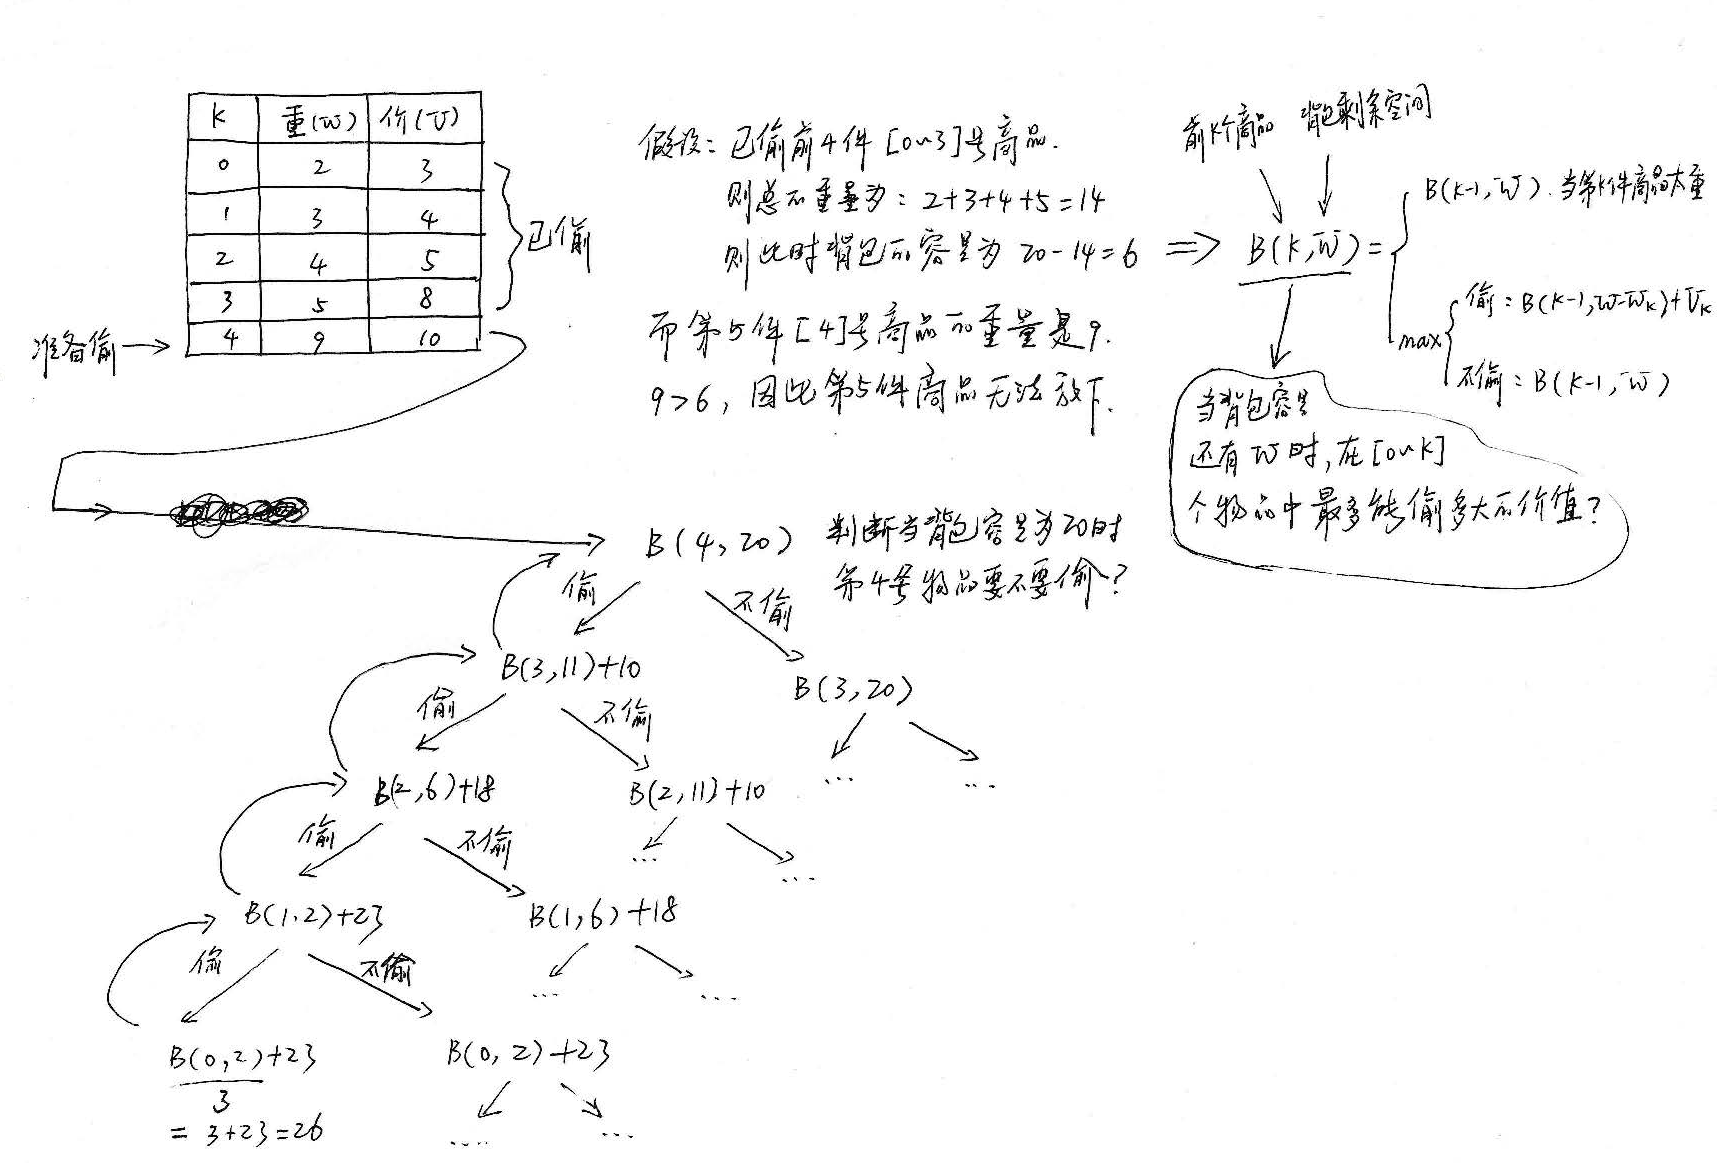 K 重(w) 价(v)
0 2 3
1 3 4
2 4 5
3 5 8
4 9 10
已偷
准备偷
假设：已偷前4件[0~3]号商品.
则总的重量为：2+3+4+5=14
则此时背包的容量为 20-14=6 ⇒
而第5件[4]号商品的重量是9.
9>6，因此第5件商品无法放下.
前K个商品 背包剩余空间
B(K,W)=
B(K-1,W). 当第K件商品太重
max
偷：B(K-1,W-Wk)+Vk
不偷：B(K-1,W)
当背包容量
还有W时,在[0~K]
个物品中最多能偷多大的价值？
B(4,20) 判断当背包容量为20时
第4号物品要不要偷？
偷 不偷
B(3,11)+10 B(3,20)
偷 不偷
... ...
B(2,6)+18 B(2,11)+10
偷 不偷
... ...
B(1.2)+23 B(1,6)+18
偷 不偷
... ...
B(0,2)+23 B(0,2)+23
3
= 3+23=26
.... ...